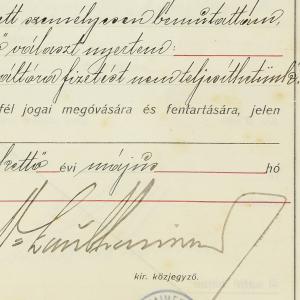 személyesen bemutattam,
választ nyertem:
váltóra fizetést nem teljesíthetünk
fél jogai megóvására és fentartására, jelen
kettő évi május hó
kir. közjegyző.